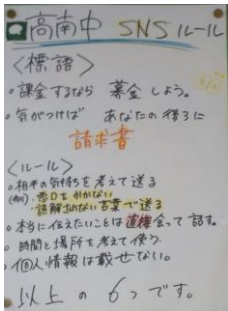 高南中 SNSルール
〈標語〉
・課金するなら 募金しよう。
・気がつけば あなたの後ろに
請求書
〈ルール〉
・相手の気持ちを考えて送る
(例)・悪口をかかない
・誤解されない言葉で送る
・本当に伝えたいことは直接会って話す。
・時間と場所を考えて使う
・個人情報は載せない。
以上の6つです。